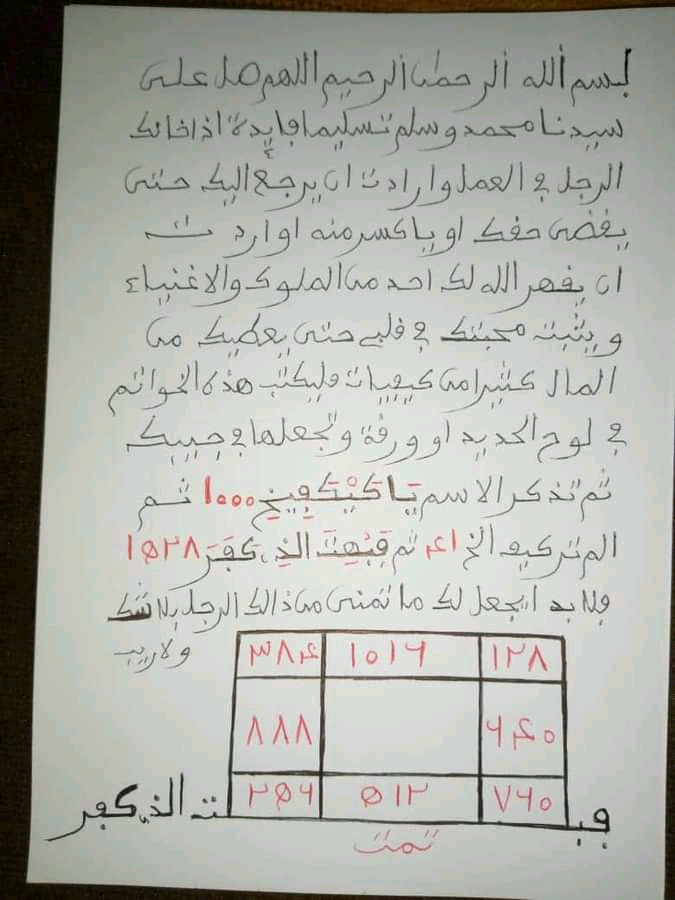 بسم الله الرحمن الرحيم اللهم صل على
سيدنا محمد وسلم تسليما فايدة اذا خانك
الرجل في العمل وارادت ان يرجع اليك حتى
يقضى حقك او ياكسر منه او اردت
ان يقهر الله لك احد من الملوك والاغنياء
ويثبته محبتك في قلبه حتى يعطيك من
المال كثيرا من كيفيات فليكتب هذه الخواتم
في لوح الحديد او ورقة وتجعلها في جيبك
ثم تذكر الاسم ١٠٠٠ ثم
الم تر كيف الخ ١٤ ثم فَبُهِتَ الذِي كَفَرَ ١٥٢٨
فلا بد ان يجعل لك ما تمنى من ذالك الرجل بلا شك
ولا ريب
٣٨٤ ١٥١٦ ١٢٨
٨٨٨ ٦٤٠
٢٥٦ ٥١٢ ٧٦٠
فبهت الذي كفر
تمت